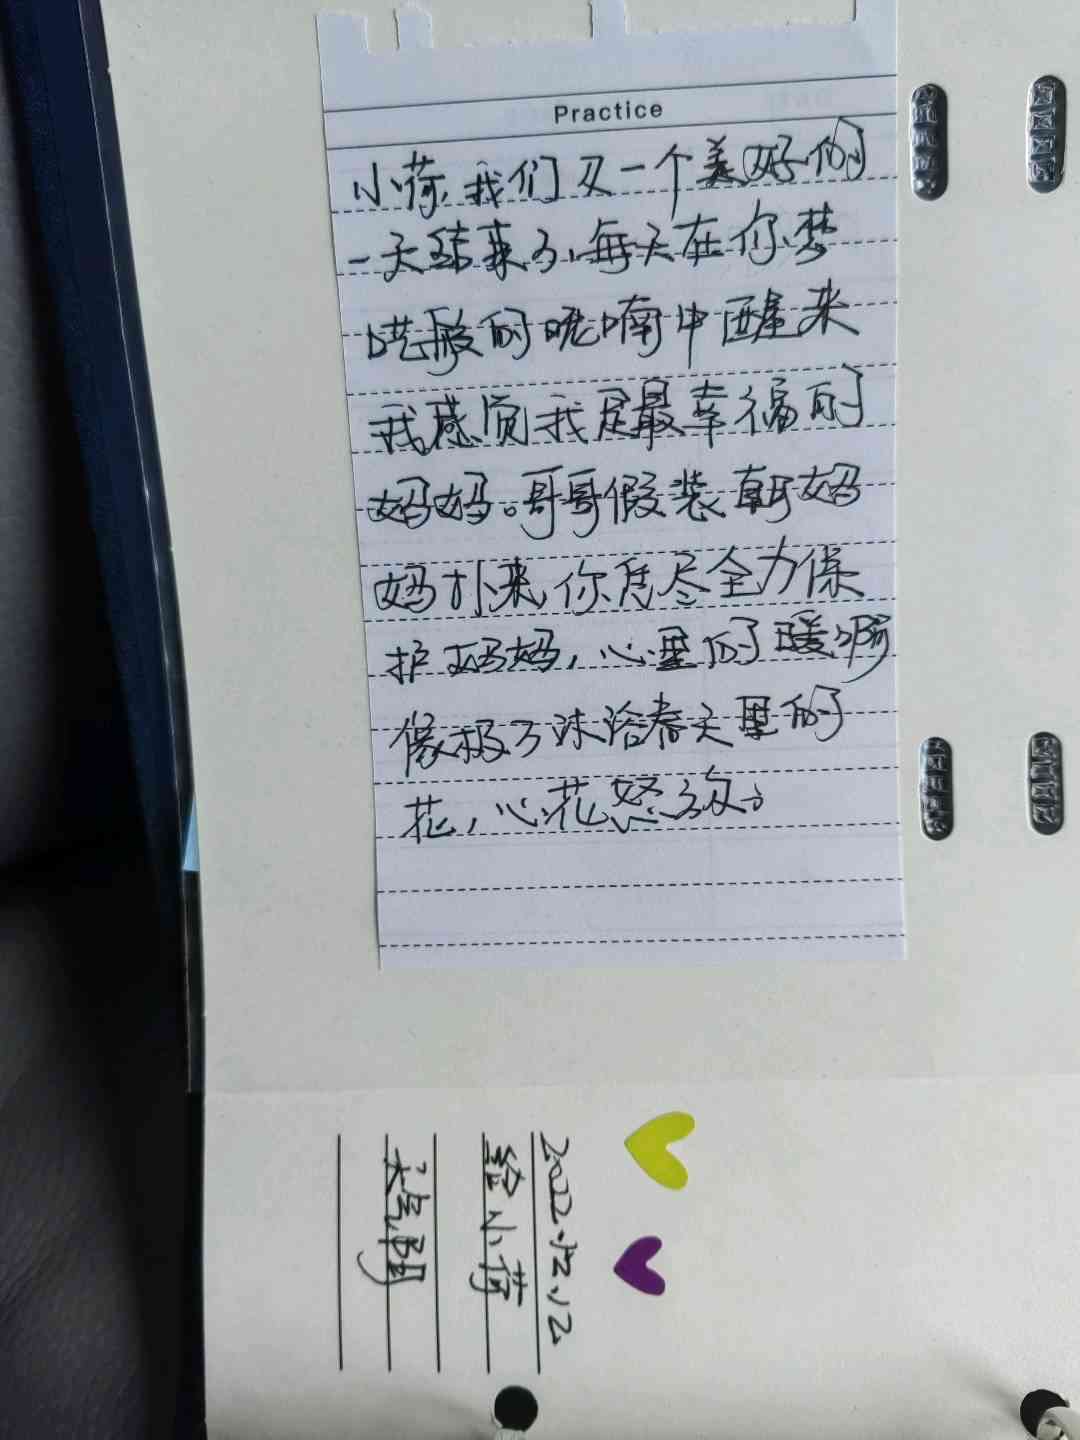 Practice
小荷,我们又一个美好的
一天结束了,每天在你梦
呓般的呢喃中醒来
我感觉我是最幸福的
妈妈。哥哥假装朝妈
妈扑来,你凭尽全力保
护妈妈,心里的暖啊
像极了沐浴春天里的
花,心花怒放。
2022.12.12
给小荷
天气:阴